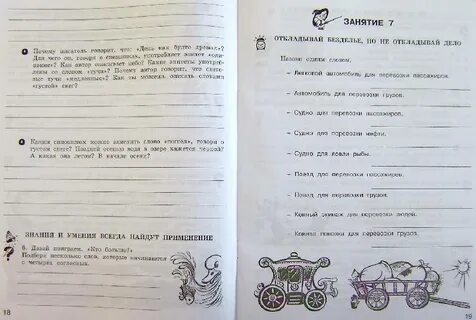 Почему писатель говорит, что: «День как будто дремал»?
Для чего он, говоря о снежинках, употребляет эпитет
Как автор описывает небо? Какие эпитеты
со словом «тучи»? Почему автор говорит, что
тучи «медленные»? Как ты можешь описать словами
«густой» снег?
Каким синонимом можно заменить слово говоря о
снеге? Поздней осенью вода в озере кажется черной?
А какая она летом? В начале осени?
ЗНАНИЯ И УМЕНИЯ ВСЕГДА НАЙДУТ ПРИМЕНЕНИЕ
6. Давай поиграем. «Кто больше?»
Подбери несколько слов, которые начинаются
с четырех согласных.
18
ЗАНЯТИЕ 7
ОТКЛАДЫВАЙ БЕЗДЕЛЬЕ, ПО НЕ ОТКЛАДЫВАЙ ДЕЛО
Назови одним словом.
– Легковой автомобиль для перевозки пассажиров.
– Автомобиль для перевозки грузов.
– Судно для перевозки пассажиров.
– Судно для перевозки нефти.
– Судно для ловли рыбы.
– Поезд для перевозки пассажиров.
– Поезд для перевозки грузов.
– Конный экипаж для перевозки людей.
– Конная повозка для перевозки грузов.
19